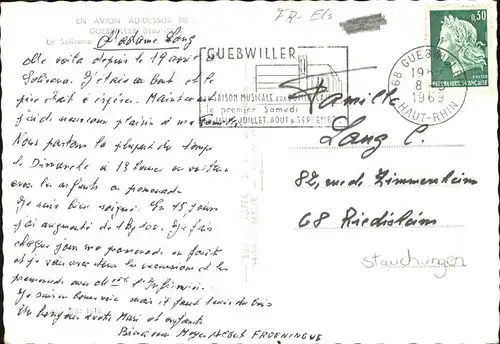 EN AVION AU-DESSUS DE...
GUEBWILLER (Haut-Rhin)
Le Solisana
FR-Els
Madame Lang
Me voilà depuis le 19 avril à
Solisana. J'étais au bout et le
était à refaire. Maintenant
j'ai de nouveau plaisir à ma famille
Nous partons la plupart du temps
le Dimanche à 13 heures en voiture
avec les enfants en promenade
Je suis bien soigné. En 15 jours
j'ai augmenté de 1 kg 100. Je fais
chaque jour ma promenade en forêt
et je vais avec dans les excursions et les
promenades avec de l'Infirmière.
Je suis mais il faut
Un bonjour à votre Mari et enfants
Meyer Albert FROENINGUE
GUEBWILLER
SAISON MUSICALE aux DOMINICAINS
le premier Samedi
JUILLET, AOUT & SEPTEMBRE
68 GUEBWILLER
19
8
1969
HAUT-RHIN
0,30
REPUBLIQUE FRANÇAISE
POSTES
Famille
Lang C.
82, rue de Zimmersheim
68 Riedisheim
Stauchungen